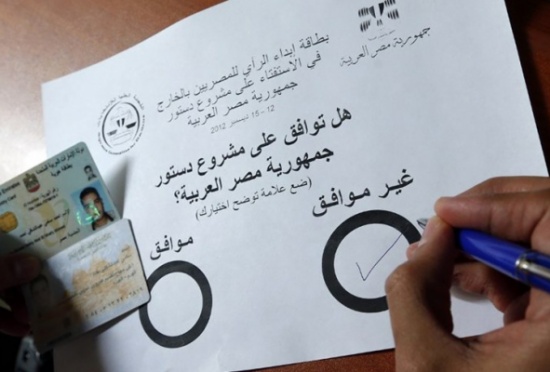 جمهورية مصر العربية
بطاقة ابداء الرأي للمصريين بالخارج
في الاستفتاء على مشروع دستور
جمهورية مصر العربية
12 - 15 ديسمبر 2012
هل توافق على مشروع دستور
جمهورية مصر العربية؟
(ضع علامة توضح اختيارك)
غير موافق
موافق